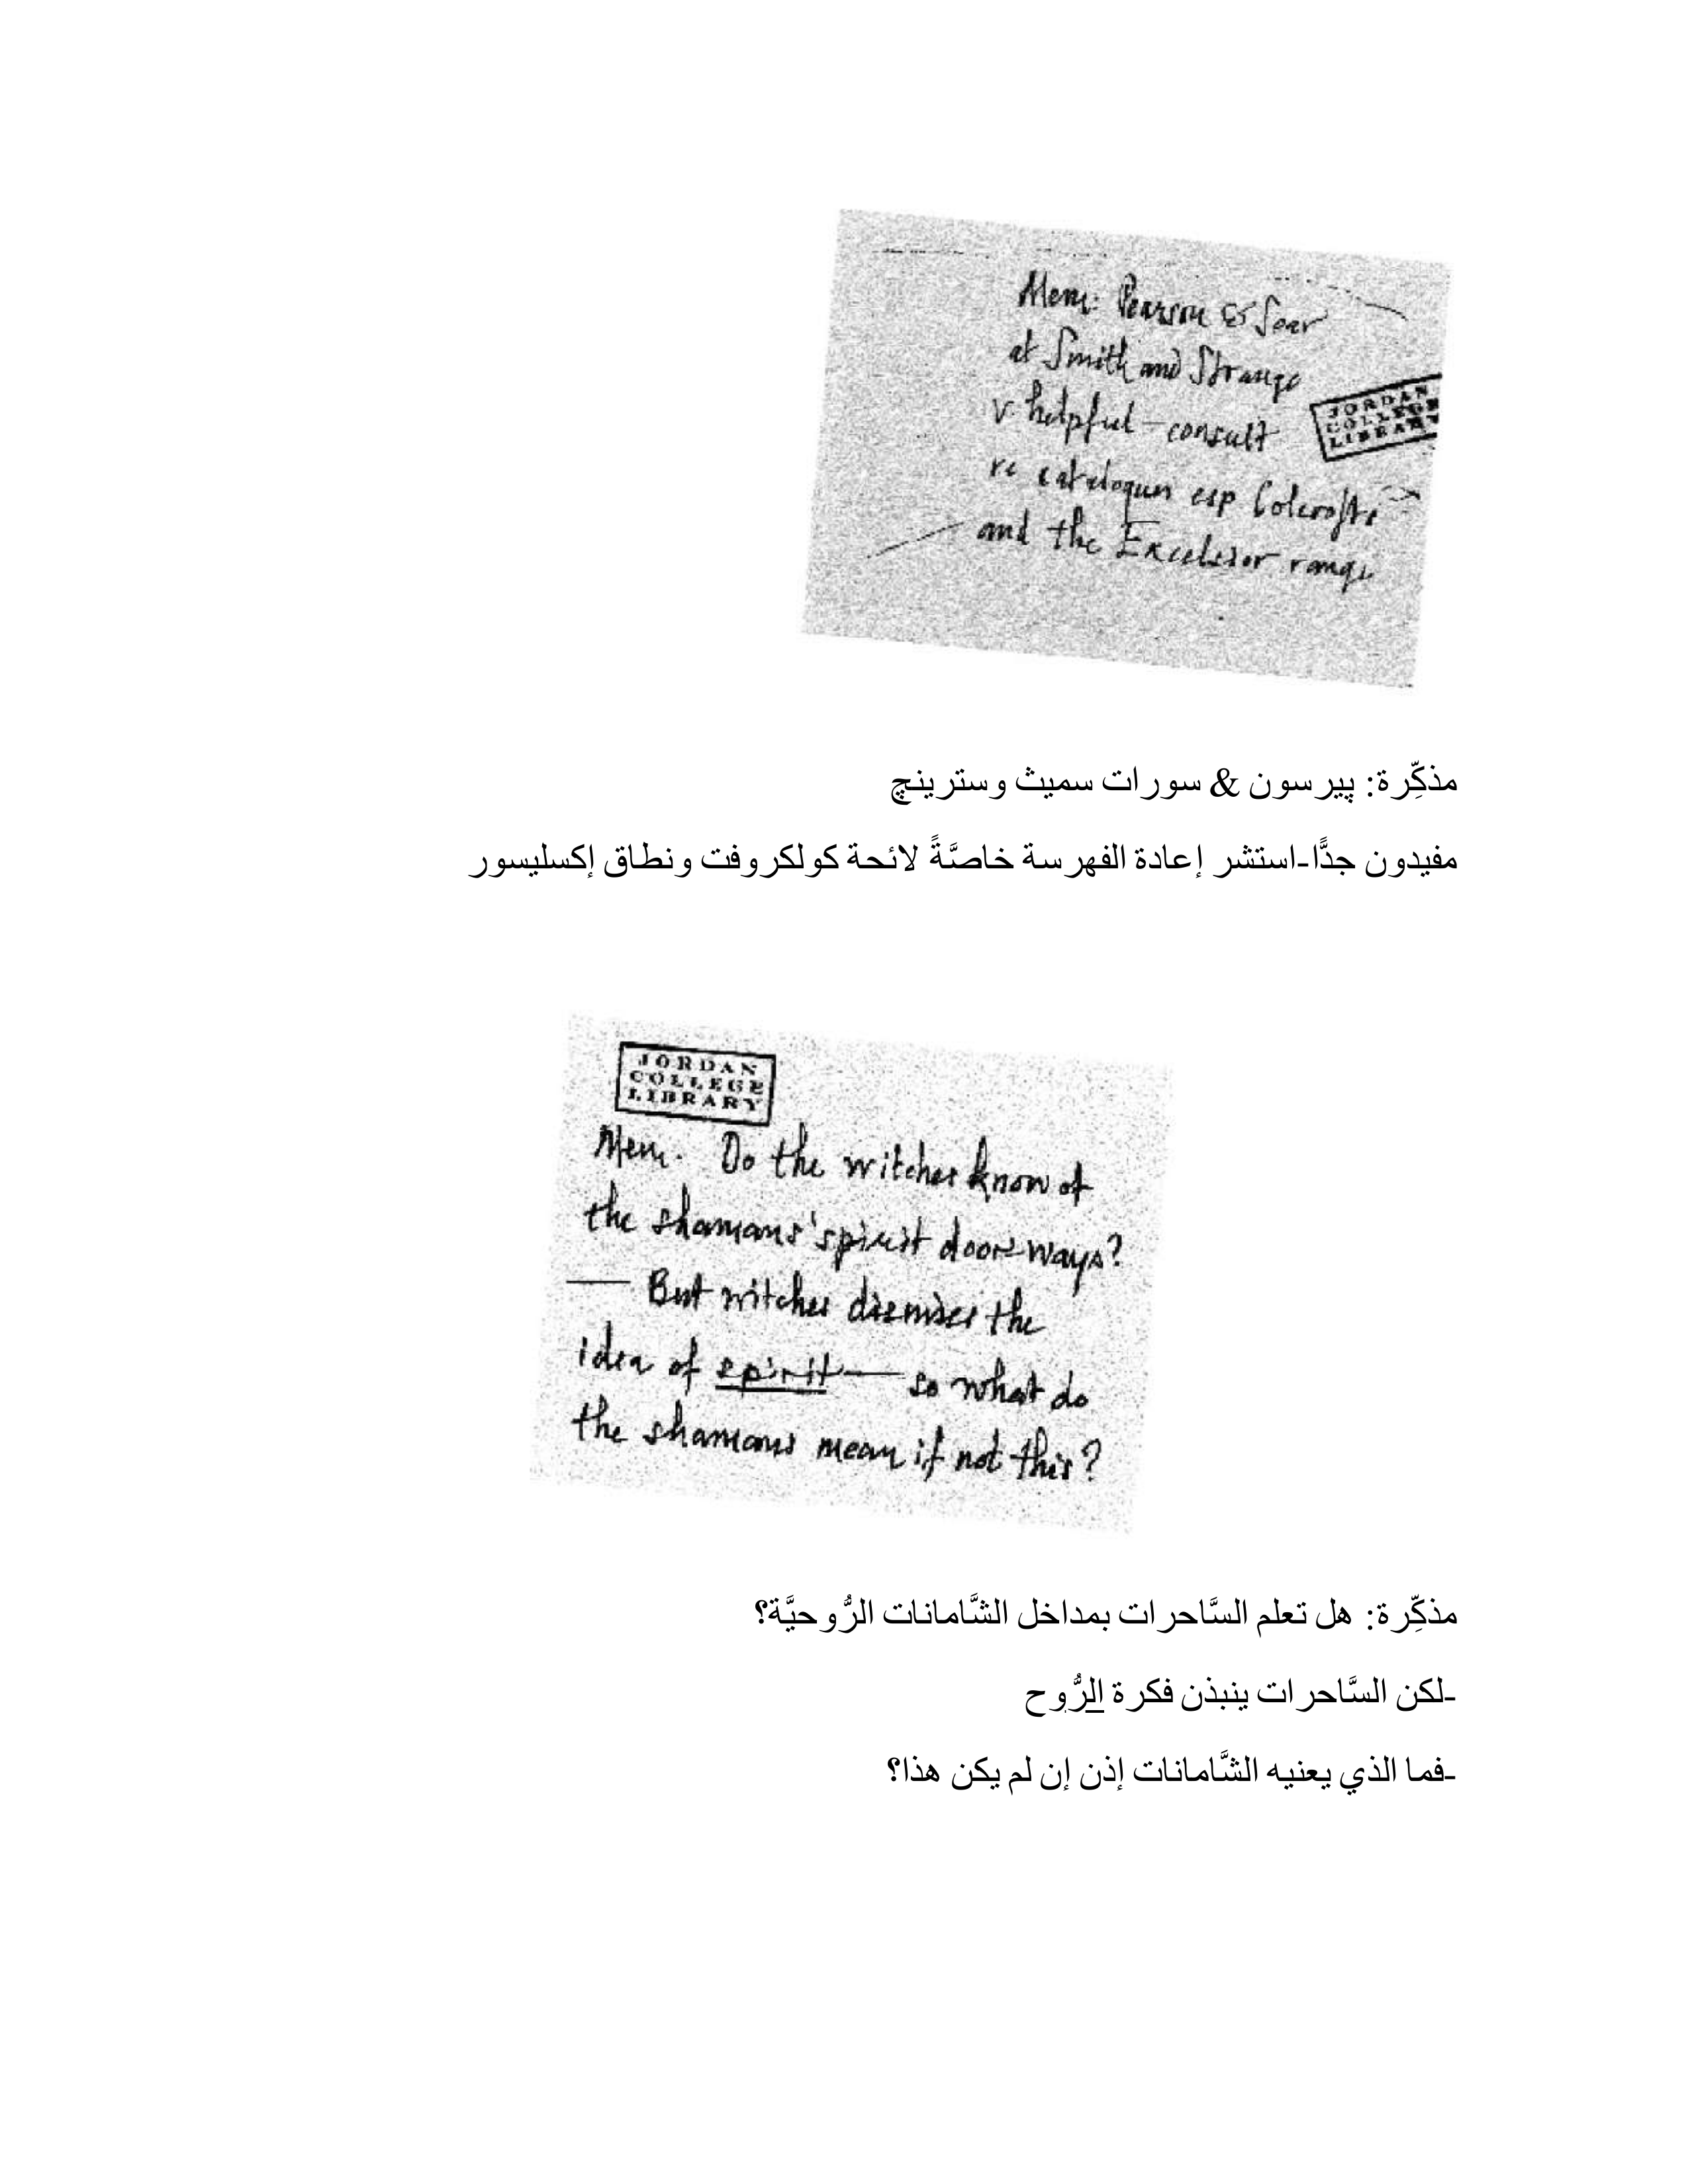 Mem: Pearson & Soar
at Smith and Strange
v. helpful – consult
JORDAN
COLLEGE
LIBRARY
re catalogues esp
and the Excelsior range
مذكِّرة: پيرسون & سورات سميث وسترينچ
مفيدون جدًّا-استشر إعادة الفهرسة خاصَّةً لائحة كولكروفت ونطاق إكسليسور
JORDAN
COLLEGE
LIBRARY
Mem. Do the witches know of
the shamans' spirit doorways?
— But witches dismiss the
idea of spirit — so what do
the shamans mean if not this?
مذكِّرة: هل تعلم السَّاحرات بمداخل الشَّامانات الرُّوحيَّة؟
-لكن السَّاحرات ينبذن فكرة الرُّوح
-فما الذي يعنيه الشَّامانات إذن إن لم يكن هذا؟